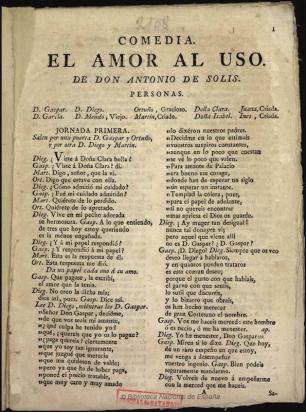 2108
1
COMEDIA.
EL AMOR AL USO.
DE DON ANTONIO DE SOLIS.
PERSONAS.
D. Gaspar. D. Diego. Ortuño, Gracioso. Doña Clara. Juana, Criada.
D. Garcia. D. Mendo, Viejo. Martin, Criado. Doña Isabel. Ines, Criada.
JORNADA PRIMERA.
Salen por una puerta D. Gaspar y Ortuño,
y por otra D. Diego y Martin.
Dieg. ¿Viste á Doña Clara bella?
Gasp. ¿Viste á Doña Clara? di.
Mart. Digo, señor, que la vi.
Ort. Digo que estuve con ella.
Dieg. ¿Cómo admitió mi cuidado?
Gasp. ¿Fué mi cuidado admitido?
Mart. Quiérete de lo perdido.
Ort. Quiérete de lo apretado.
Dieg. Vive en mi pecho adorada
su hermosura. Gasp. A lo que entiendo,
de tres que hoy estoy queriendo
es la ménos engañada.
Dieg. ¿Y á mi papel respondió?
Gasp. ¿Y respondió á mi papel?
Mart. Esta es la respuesta de él.
Ort. Esta respuesta me dió.
Da un papel cada uno á su amo.
Gasp. Que pagase, la escribí,
el amor que la tenia.
Dieg. No creo la dicha mia;
dice así, pues. Gasp. Dice así.
Lee D. Diego miéntras lee D. Gaspar.
»Señor Don Gaspar, decidme,
»de que vos seais mi amante,
»¿qué culpa he tenido yo?
»¿qué, ¿quereis que yo os lo pague?
»¿paga quereis? ciertamente
»que yo soy tan ignorante,
»que juzgué que merecia
»que me quisiesen de valde;
»pero ya que ha de haber paga,
»poned el precio tratable,
»que muy caro y muy amado
»lo dixéron nuestros padres.
»Decidme en lo que estimais
»vuestros suspiros constantes,
»aunque en lo poco que cuestan
»se vé lo poco que valen.
»Para amante de Palacio
»erais como de encaxe,
»donde han de esperar un siglo
»sin esperar un instante.
»Templad la cólera, pues,
»para el papel de adelante,
»si no quereis encontrar
»mas aprisa el Dios os guarde.
Dieg. ¡Ay muger tan desigual!
nunca tal donayre vi;
pero aquel que viene allí
no es D. Gaspar? ó Gaspar?
Gasp. ¿D. Diego? Dieg. Siempre que os veo
deseo llegar á hablaros,
mi quietos pueden trataros
es este comun deseo;
porque el gusto con que hablais,
el garvo con que sentis,
lo sutil que discurris,
y lo bizarro que obrais,
os han hecho merecer
de gran Cortesano el nombre.
Gasp. Vos me haceis merced: este hombre
ó es necio, ó me ha menester. ap.
Dieg. Yo he menester, Don Gaspar==
Gasp. Miren si lo dixe. Dieg. Que hoy,
dé un raro empeño en que estoy,
me venga á desempeñar
vuestro ingenio. Gasp. Bien podeis
seguramente mandarme.
Dieg. Volveis de nuevo á empeñarme
con la merced que me haceis.
Sa-
© Biblioteca Nacional de España